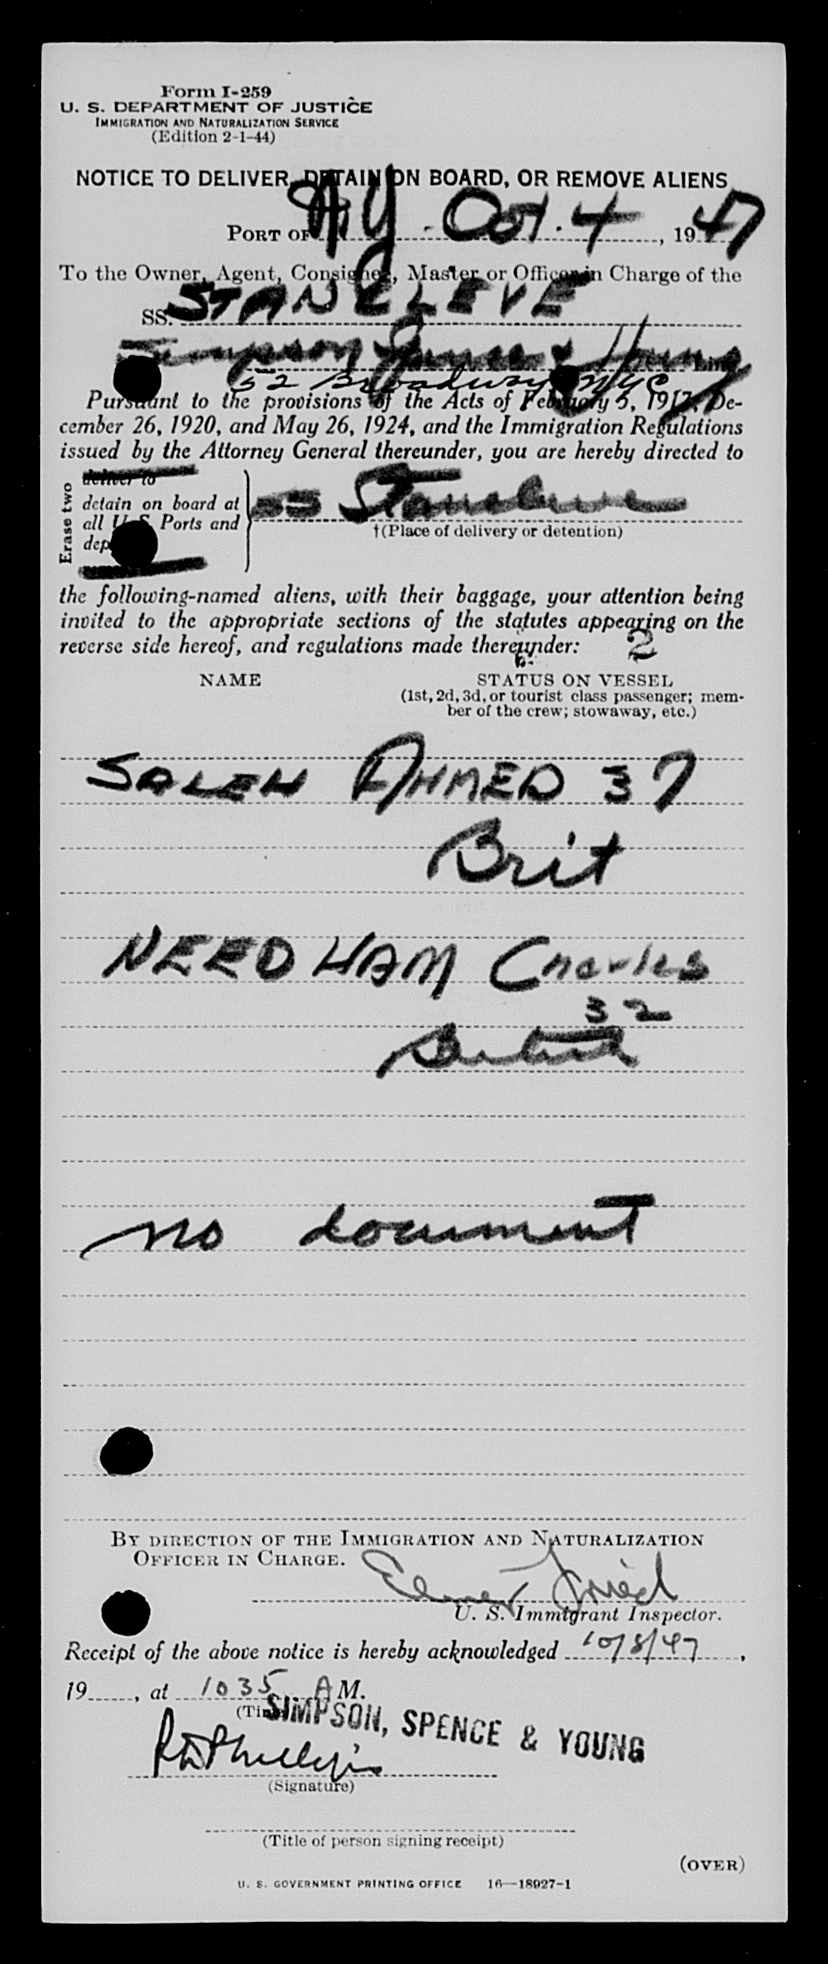 Form I-259
U. S. DEPARTMENT OF JUSTICE
IMMIGRATION AND NATURALIZATION SERVICE
(Edition 2-1-44)
NOTICE TO DELIVER, DETAIN ON BOARD, OR REMOVE ALIENS
PORT OF N.Y. Oct. 4, 1947
To the Owner, Agent, Consignee, Master or Officer in Charge of the
SS. STANCLEVE
Simpson Spence & Young Line
52 Broadway NYC
Pursuant to the provisions of the Acts of February 5, 1917, De-
cember 26, 1920, and May 26, 1924, and the Immigration Regulations
issued by the Attorney General thereunder, you are hereby directed to
Erase two
deliver to
detain on board at
all U. S. Ports and
SS Stancleve
†(Place of delivery or detention)
the following-named aliens, with their baggage, your attention being
invited to the appropriate sections of the statutes appearing on the
reverse side hereof, and regulations made thereunder: 2
NAME STATUS ON VESSEL
(1st, 2d, 3d, or tourist class passenger; mem-
ber of the crew; stowaway, etc.)
SALEH AHMED 37
Brit
NEEDHAM Charles
32
British
no document
BY DIRECTION OF THE IMMIGRATION AND NATURALIZATION
OFFICER IN CHARGE.
Elmer Fried
U. S. Immigrant Inspector.
Receipt of the above notice is hereby acknowledged 10/8/47,
19, at 1035 AM.
(Time)
SIMPSON, SPENCE & YOUNG
RD Phillips
(Signature)
(Title of person signing receipt)
(OVER)
U. S. GOVERNMENT PRINTING OFFICE 16—18927-1